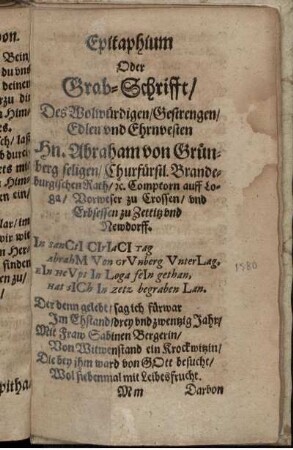 Epitaphium
Oder
Grab-Schrifft/
Des Wolwürdigen/Gestrengen/
Edlen vnd Ehrnvesten
Hn. Abraham von Grün-
berg seligen/Churfürstl. Brande-
burgischen Rath/ ꝛc. Comptorn auff Lo-
ga/ Vorweser zu Crossen/ vnd
Erbsessen zu Zettitz vnd
Newdorff.
In sanCtI CIrIaCI tag
AbrahM Von grVnberg VnterLag.
In Loga feIn gethan,
Hat sICh In zetz begraben Lan.
1580
Der denn gelebt/ sag ich fürwar
Im Ehstand/drey vnd zwentzig Jahr/
Mit Fraw Sabinen Bergerin/
Von Witwenstand ein Krockwitzin/
Die bey ihm ward von GOtt besucht/
Wol siebenmal mit Leibesfrucht.
Mm Darvon